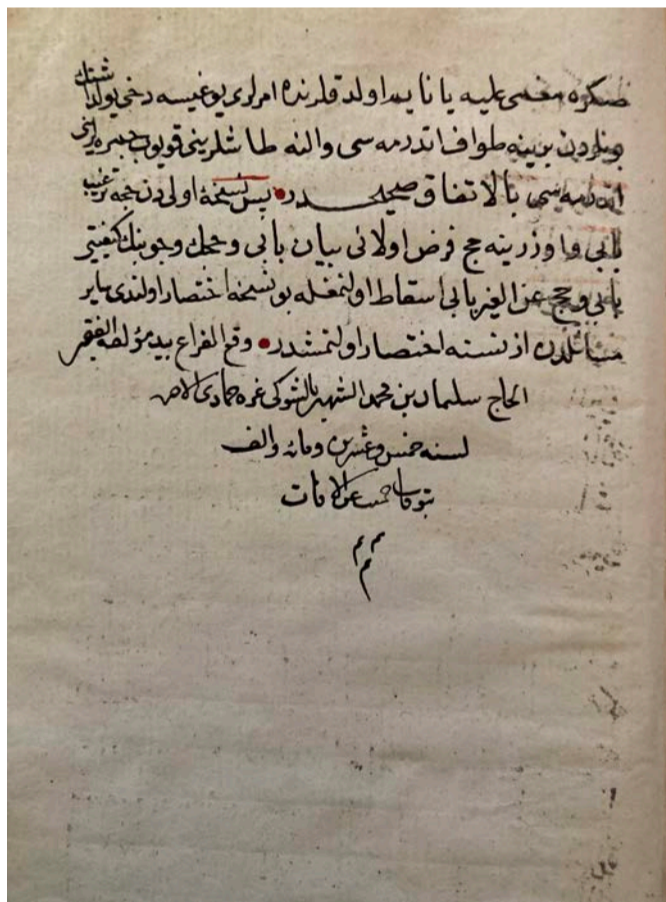 صكره مغمى عليه يا نايم اولدقلرنده امرلرى يوغيسه دخى يولداشنك
بونلردن برينه طواف اتدرمه سى والنه طاشلرينى قويوب جمره يه
اتدرمه سى بالاتفاق صحيحدر پس نسخۀ اولى دن حجه ترغيب
بابى و اوزرينه حج فرض اولانى بيان بابى و حجك وجوبنك كيفيتى
بابى و حج عن الغير بابى اسقاط اولنمغله بو نسخه اختصار اولندى ساير
مسائلدن از نسنه اختصار اولنمشدر وقع الفراغ بيد مؤلفه الفقير
الحاج سليمان بن محمد الشهير بالشوكى غره جمادى الاخر
لسنه خمس وعشرين ومائه والف
بتوقات حميت عن الافات
م م م